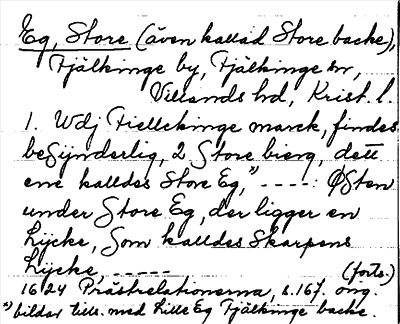 Eg, Store (även kallad Store backe),
Fjälkinge by, Fjälkinge sn,
Villands hd, Krist. l.
1. Wdj Fiellckinge marck, findes
besÿnderlig, 2 Store bierg, dett
ene kalldes Store Eg,*) ----: Østen
under Store Eg, der ligger en
Lÿcke, Som kalldes Skarpens
Lÿcke, -----
(forts.)
1624 Prästrelationerna, s. 167. orig.
*) bildar tills. med Lille Eg Fjälkinge backe.